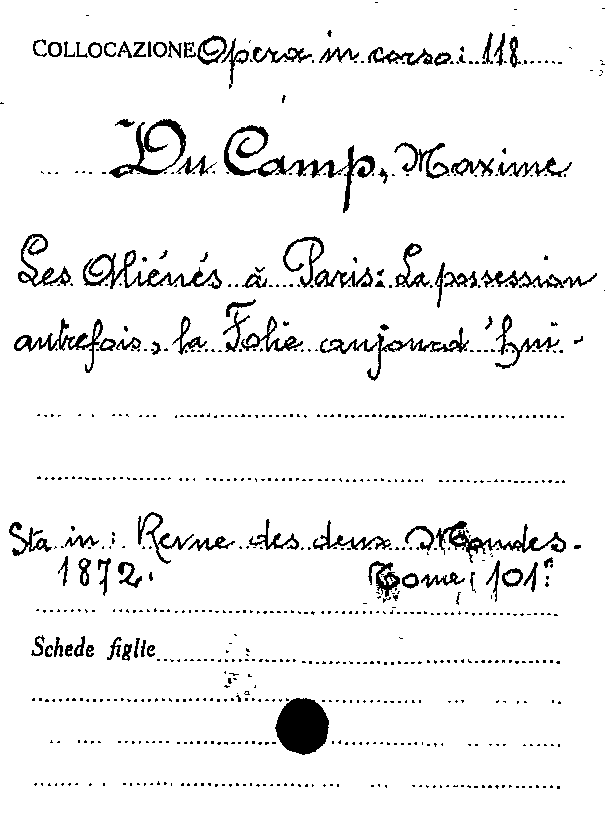 COLLOCAZIONE Opera in corso: 118
Du Camp, Maxime
Les Aliénés à Paris: La possession
autrefois, la Folie aujourd'hui -
Sta in: Revue des deux Mondes.
1872. Tome: 101º
Schede figlie